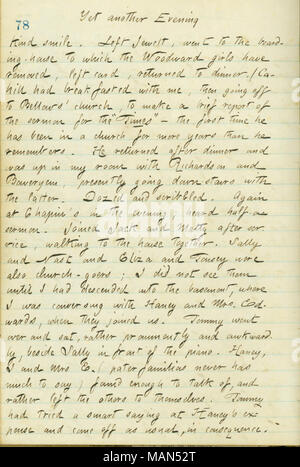 78
Yet another Evening
kind smile. Left Jewett, went to the board-
ing-house to which the Woodward girls have
removed, left card, returned to dinner. (Ca-
hill had breakfasted with me, then going off
to Bellows' church, to make a brief report of
the sermon for the "Times" — the first time he
has been in a church for more years than he
remembers. He returned after dinner and
was up in my room with Richardson and
Boweryem, presently going down stairs with
the latter. Dozed and scribbled. Again
at Chapin's in the evening; heard half a
sermon. Joined Jack and Matty after ser-
vice, walking to the house together. Sally
and Nast and Eliza and Tousey were
also church-goers; I did not see them
until I had descended into the basement, where
I was conversing with Haney and Mrs. Ed-
wards, when they joined us. Tommy went
over and sat, rather prominently and awkward-
ly, beside Sally in front of the piano. Haney,
I and Mrs. E. (pater familias never has
much to say) found enough to talk of, and
rather left the others to themselves. Tommy
had tried a smart saying at Haney's ex-
pense and came off as usual, in consequence.
alamy
Image ID: MAN52T
www.alamy.com